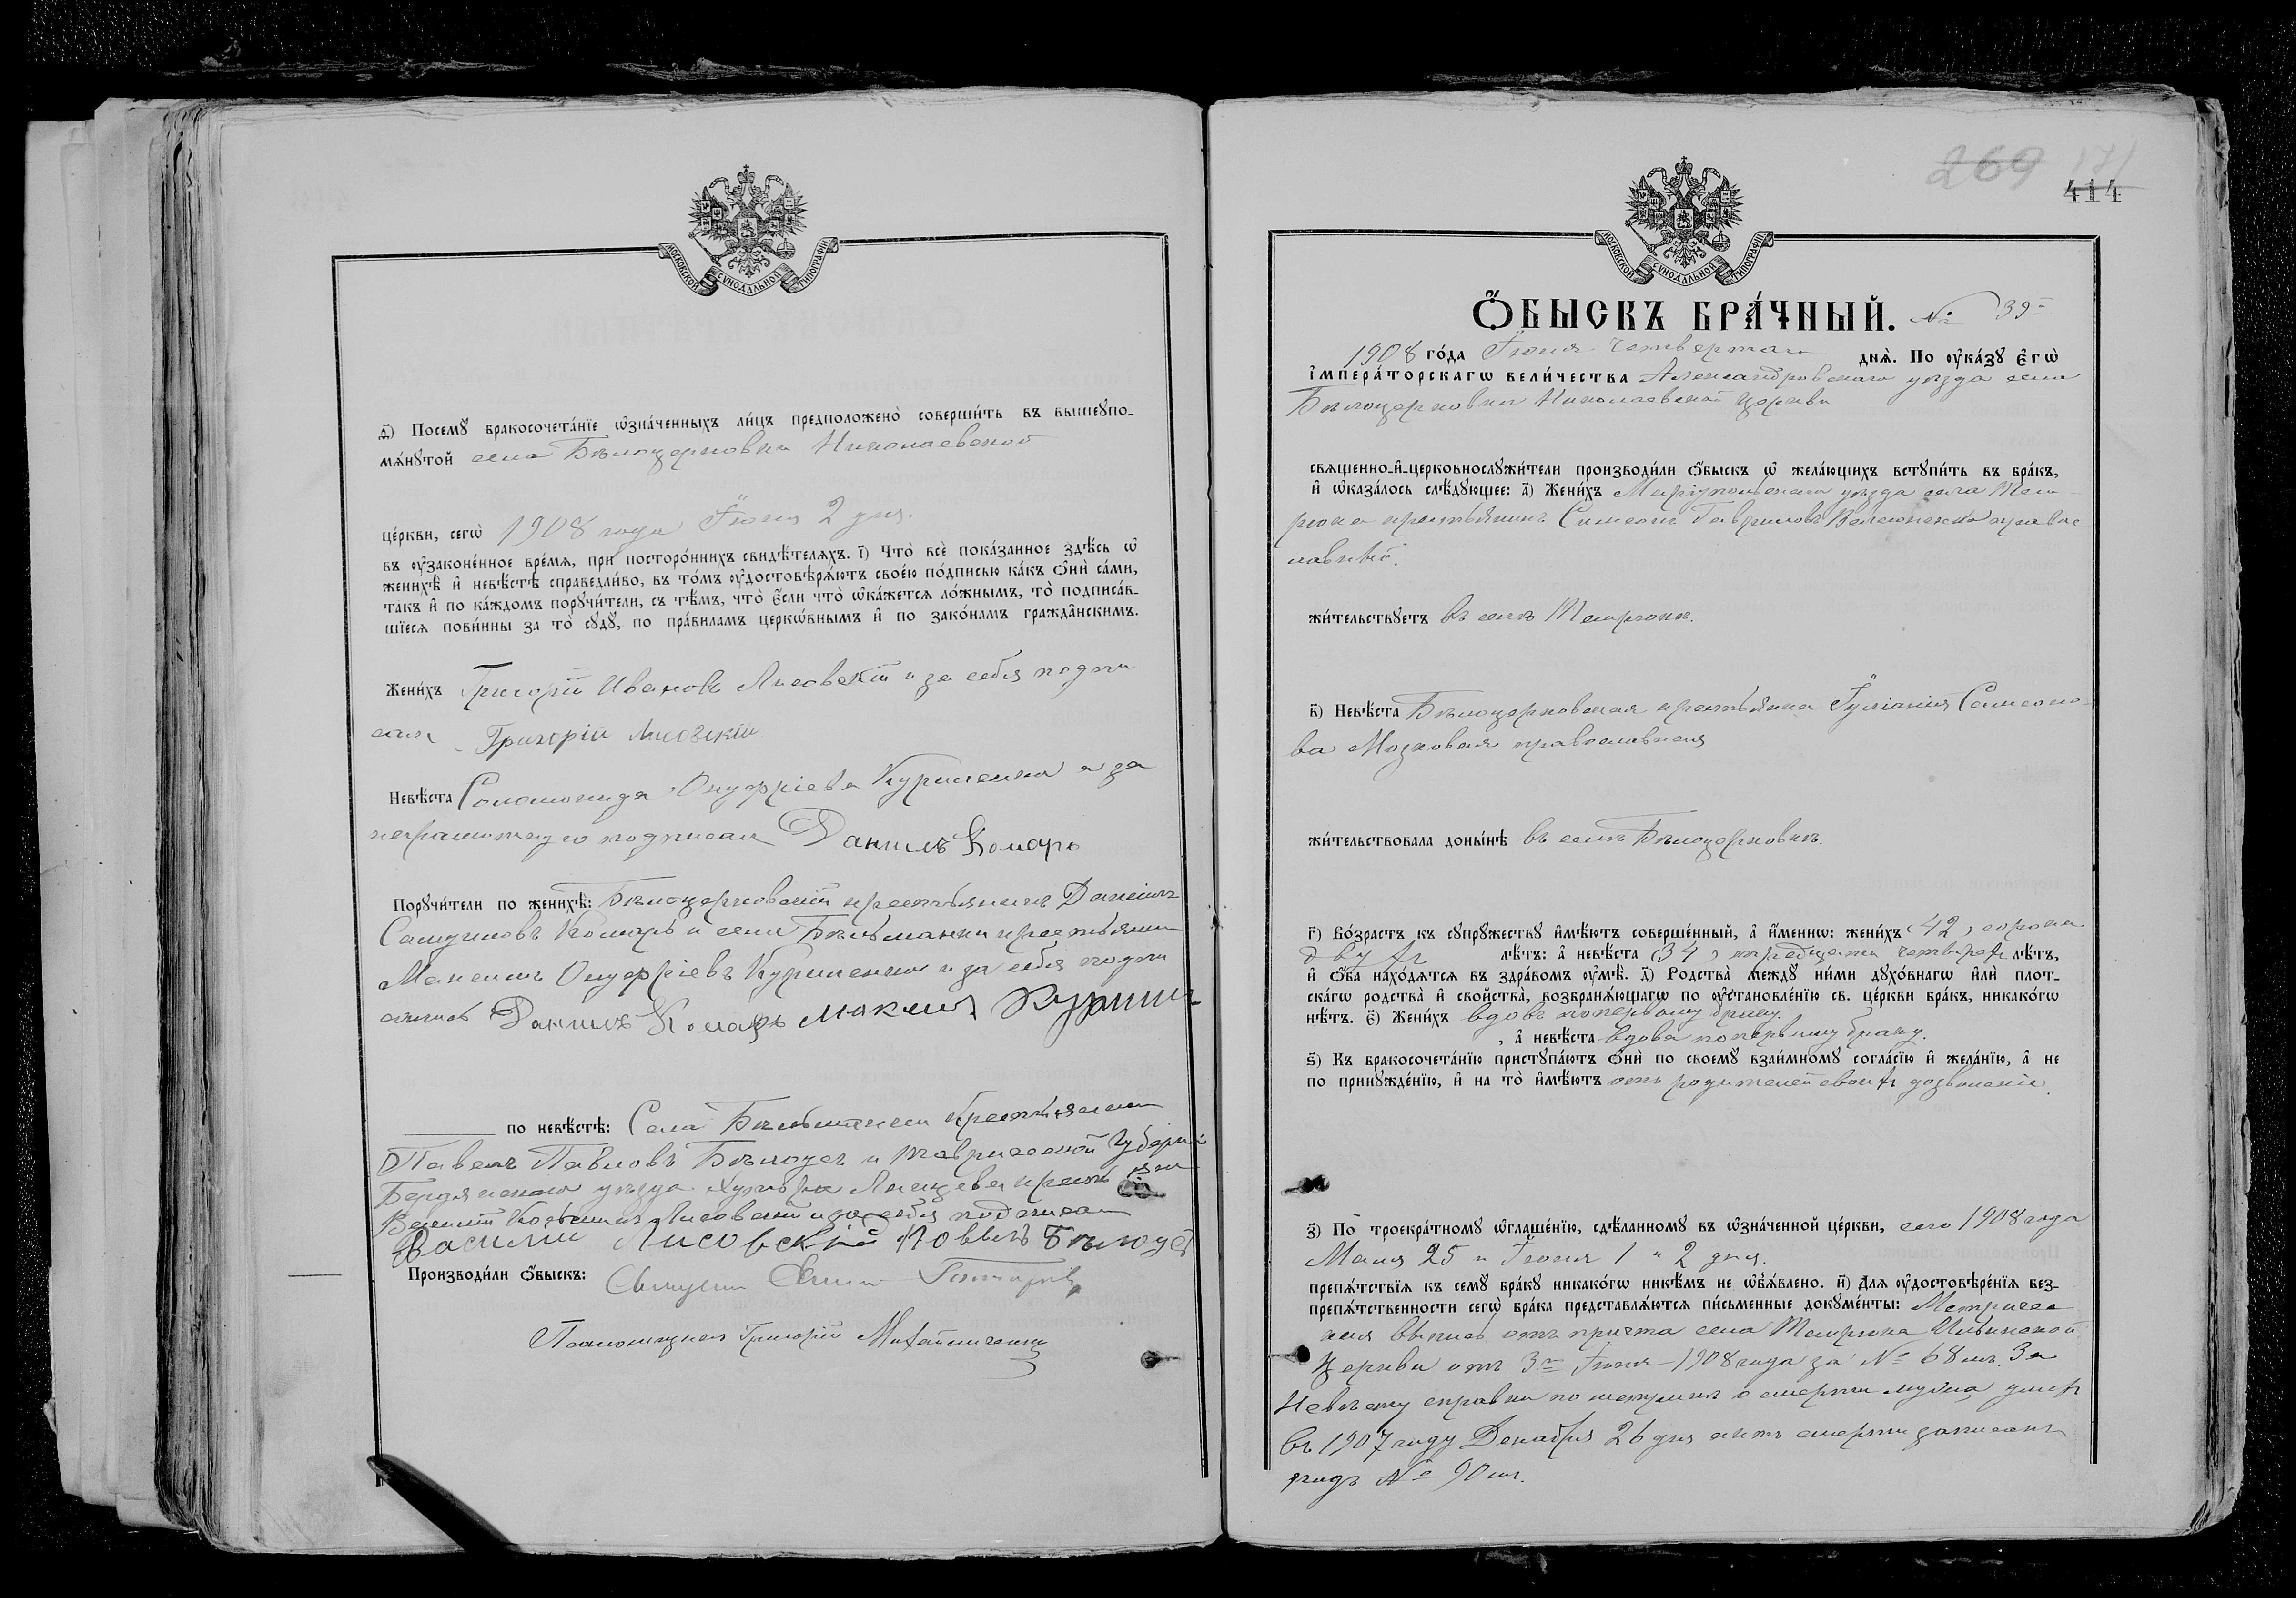 МОСКОВСКОЙ СѴНОДАЛЬНОЙ ТИПОГРАФІИ
д҃і) Посемꙋ̀ бракосочета́нїе ѡ҆зна́ченныхъ ли́цъ предположено̀ соверши́ть въ вышеꙋпо-
мѧ́нꙋтой села Бѣлоцерковки Николаевской
це́ркви, сегѡ̀ 1908 года Іюня 2 дня.
въ ᲂу҆законе́нное вре́мѧ, при посторо́ннихъ свидѣ́телѧхъ. і҃) Что̀ всѐ пока́занное здѣ́сь ѡ҆
женихѣ̀ и҆ невѣ́стѣ справедли́во, въ то́мъ ᲂу҆достовѣрѧ́ютъ свое́ю по́дписью ка́къ ѻ҆нѝ са́ми,
такъ и҆ по ка́ждомъ порꙋчи́тели, съ тѣ́мъ, что̀ є҆́сли что̀ ѡ҆ка́жетсѧ ло́жнымъ, то̀ подписа́в-
шїесѧ пови́нны за то̀ сꙋдꙋ̀, по пра́виламъ церкѡ́внымъ и҆ по зако́намъ гражда̑нскимъ.
Жени́хъ Григорій Ивановъ Лисовскій и за себя подпи
сался Григорій Лисовскій
Невѣ́ста Соломонида Онуфріева Куриленко а за
неграмотную подписал Данилъ Комарь
Порꙋчи́тели по женихѣ̀: Бѣлоцерковскій крестьянинъ Даніилъ
Самуиловъ Комарь и села Бѣльманки крестьянин
Максимъ Онуфріевъ Куриленко и за себя подпи
сались Данилъ Комарь Максим Курили
по невѣ́стѣ: Села Бѣльманки крестьянин
Павелъ Павловъ Бѣлоусъ и Таврической губерні
Бердянскаго уѣзда хутора крестьянин
Василій Лисовскій и за себя подписал
Василий Лисовскій Повелъ Бѣлоус
Производи́ли ѻ҆́быскъ: Священникъ
Псаломщикъ Григорій Михайличенко
269 171
414
МОСКОВСКОЙ СѴНОДАЛЬНОЙ ТИПОГРАФІИ
Ѻ҆́БЫСКЪ БРА́ЧНЫЙ. № 39
1908 го́да Іюня четвертаго днѧ̀. По ᲂу҆ка́зꙋ Є҆гѡ̀
І҆мпера́торскагѡ вели́чества Александровскаго уѣзда села
Бѣлоцерковки Николаевской церкви
свѧще́нно-и҆-церковнослꙋжи́тели производи́ли ѻ҆́быскъ ѡ҆ жела́ющихъ встꙋпи́ть въ бра́къ,
и҆ ѡ҆каза́лось слѣ́дꙋющее: а҃) Жени́хъ Маріупольскаго уѣзда села Тем
рюка крестьянинъ Симеонъ Гавриловъ правос
лавный.
жи́тельствꙋетъ въ селѣ Темрюкѣ.
в҃) Невѣ́ста Бѣлоцерковская крестьянка Іуліанія Самсоно
ва Мозговая православная
жи́тельствовала доны́нѣ въ селѣ Бѣлоцерковкѣ.
г҃) Во́зрастъ къ сꙋпрꙋ́жествꙋ и҆мѣ́ютъ соверше́нный, а҆ и҆́меннѡ: жени́хъ (42) сорока
двухъ лѣ́тъ: а҆ невѣ́ста (34) тридцати четырехъ лѣ́тъ,
и҆ ѻ҆́ба нахо́дѧтсѧ въ здра́вомъ ᲂу҆мѣ̀. д҃) Родства̀ междꙋ̀ ни́ми дꙋхо́внагѡ и҆лѝ плот-
ска́гѡ родства̀ и҆ свойства̀, возбранѧ́ющагѡ по ᲂу҆становле́нїю св. це́ркви бра́къ, никако́гѡ
нѣ́тъ. є҃) Жени́хъ вдовъ по первому браку.
, а҆ невѣ́ста вдова по первому браку.
ѕ҃) Къ бракосочета́нїю пристꙋпа́ютъ ѻ҆нѝ по своемꙋ̀ взаи́мномꙋ согла́сїю и҆ жела́нїю, а҆ не
по принꙋжде́нїю, и҆ на то̀ и҆мѣ́ютъ отъ родителей своихъ дозволеніе
з҃) По троекра́тномꙋ ѡ҆глаше́нїю, сдѣ́ланномꙋ въ ѡ҆зна́ченной це́ркви, сего 1908 года
Маія 25 и Іюня 1 и 2 дня.
препѧ́тствїѧ къ семꙋ̀ бра́кꙋ никако́гѡ никѣ́мъ не ѡ҆б̾ѧ́влено. и҃) Длѧ ᲂу҆достовѣре́нїѧ без-
препѧ́тственности сегѡ̀ бра́ка представлѧ́ютсѧ пи́сьменные докꙋме́нты: Метричес
кая выпись отъ причта села Темрюка Ильинской
Церкви отъ 3го Іюня 1908 года за № 68мъ. За
Невѣсту справка по метрикѣ о смерти мужа умер
въ 1907 году Декабря 26 дня актъ смерти записанъ
подъ № 90мъ.